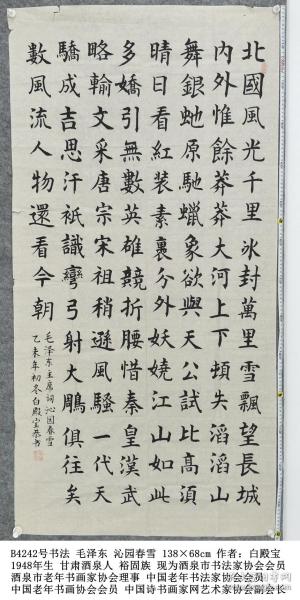 北國風光千里冰封萬里雪飄望長城
內外惟餘莽莽大河上下頓失滔滔山
舞銀虵原馳蠟象欲與天公試比高須
晴日看紅裝素裹分外妖嬈江山如此
多嬌引無數英雄競折腰惜秦皇漢武
略輸文采唐宗宋祖稍遜風騷一代天
驕成吉思汗祇識彎弓射大鵰俱往矣
數風流人物還看今朝
毛泽东主席词沁园春雪
乙未年初冬白殿宝恭书
B4242号书法 毛泽东 沁园春雪 138×68cm 作者：白殿宝
1948年生 甘肃酒泉人 裕固族 现为酒泉市书法家协会会员
酒泉市老年书画家协会理事 中国老年书法家协会会员
中国老年书画协会会员 中国诗书画家网艺术家协会副会长